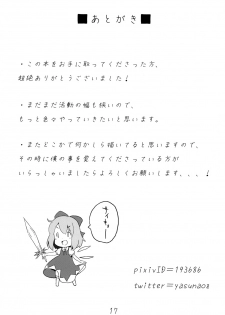 ■あとがき■
・この本をお手に取ってくださった方、
超絶ありがとうございました!
・まだまだ活動の幅も狭いので、
もっと色々やっていきたいと思います。
・またどこかで何かしら描いてると思いますので、
その時に僕の事を覚えてくださっている方が
いらっしゃいましたらよろしくお願いします、、、!
pixivID=193686
twitter=yasunaoz
17